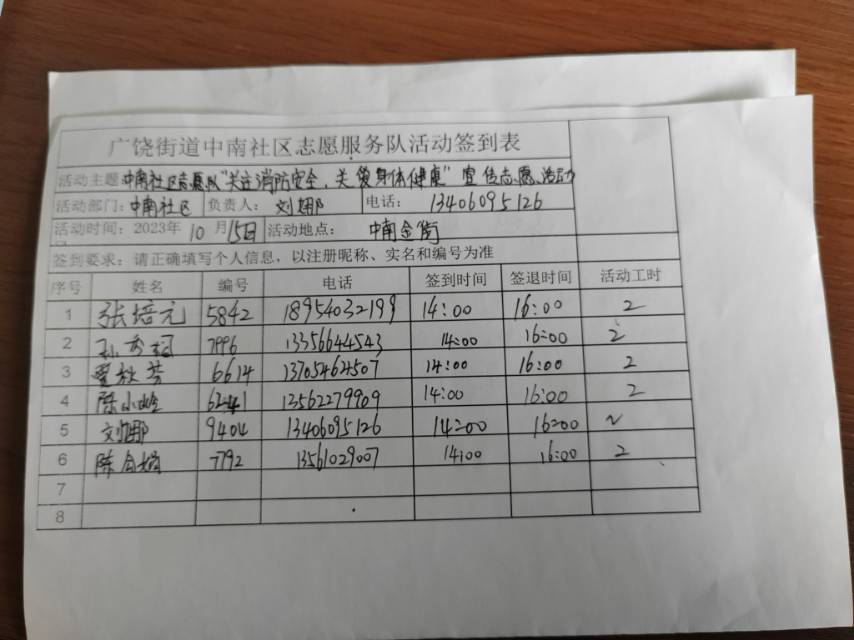 广饶街道中南社区志愿服务队活动签到表
活动主题：中南社区志愿队“关注消防安全，关爱身体健康”宣传志愿活动
活动部门：中南社区 负责人：刘娜 电话：13406095126
活动时间：2023年10月15日 活动地点：中南金街
签到要求：请正确填写个人信息，以注册昵称、实名和编号为准
序号 姓名 编号 电话 签到时间 签退时间 活动工时
1 张培元 5842 18954032199 14:00 16:00 2
2 孙秀 7996 13356644543 14:00 16:00 2
3 6614 13705464507 14:00 16:00 2
4 陈小岭 13562279909 14:00 16:00 2
5 刘娜 9404 13406095126 14:00 16:00 2
6 陈 7792 13561029007 14:00 16:00 2
7
8